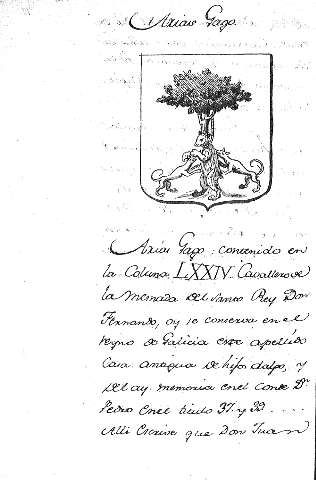 Arias Gago.
Arias Gago: contenido en
la Coluna LXXIV. Cavallero de
la Mesnada del Santo Rey Don
Fernando, oy se conserva en el
reyno de Galicia este apellido
Casa antigua de hijosdalgo, y
del ay memoria en el Conde Dn
Pedro en el titulo 37. y 39. ....
Alli Escrive que Don Juan